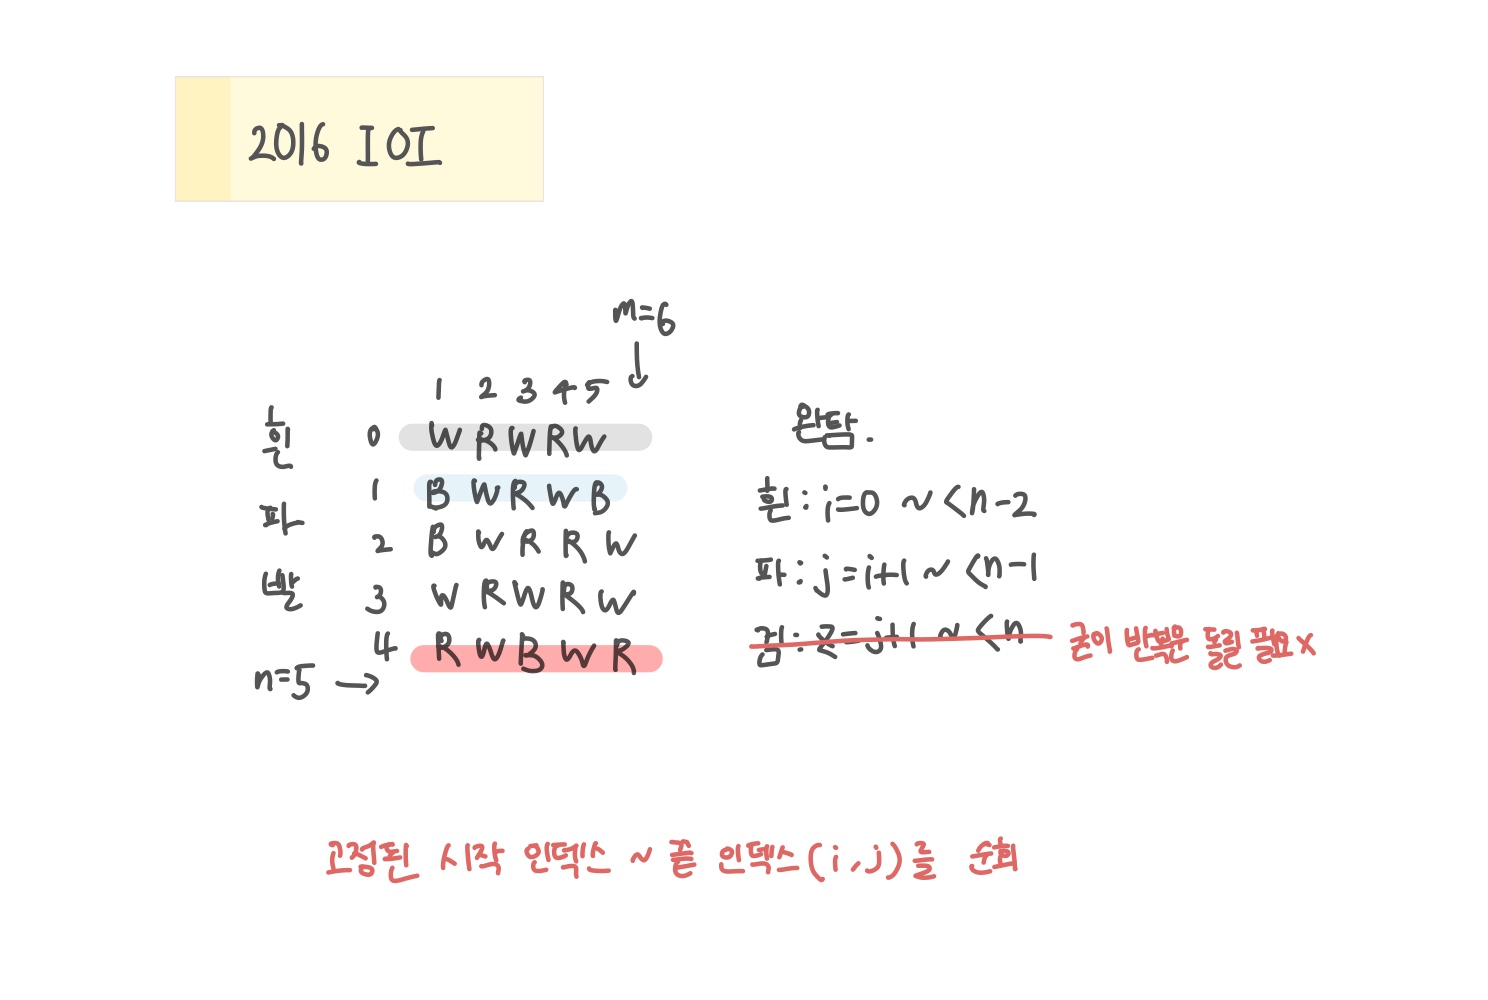 2016 IOI
m=6
↓
1 2 3 4 5
흰 0 W R W R W
1 B W R W B
파 2 B W R R W
빨 3 W R W R W
4 R W B W R
n=5 →
완탐.
흰 : i=0 ~ <n-2
파 : j=i+1 ~ <n-1
j+1 ~ <n
굳이 반복문 돌릴 필요x
고정된 시작 인덱스 ~ 끝 인덱스(i,j)를 순회